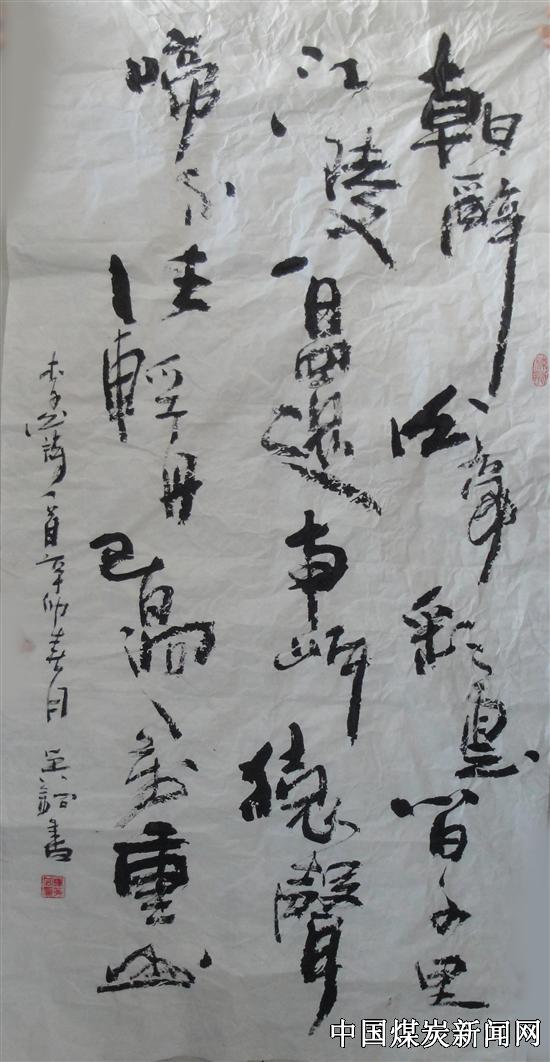 朝辭白帝彩雲間千里
江陵一日還兩岸猿聲
啼不住輕舟已過萬重山
李白詩一首辛卯春月 吴書
中国煤炭新闻网